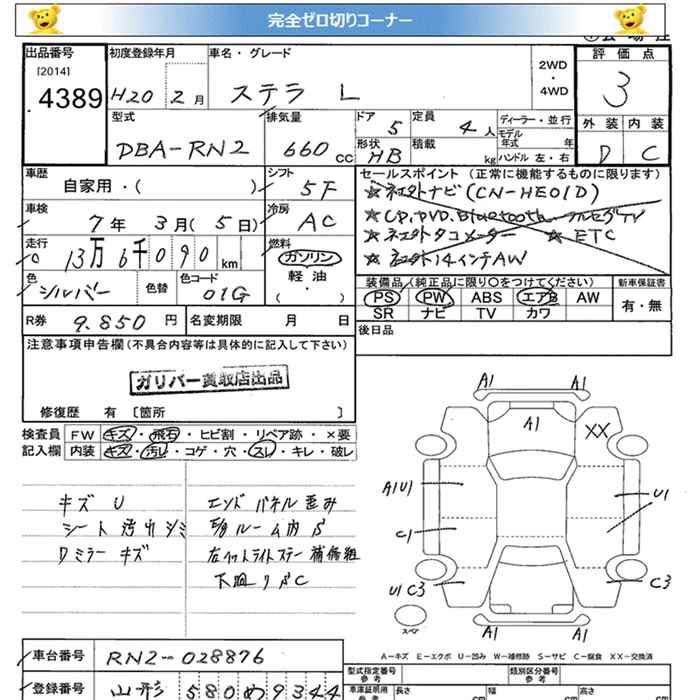 完全ゼロ切りコーナー
出品番号 [2014] 4389
初度登録年月 H20 2月
車名・グレード ステラ L
2WD・4WD
評価点 3
型式 DBA-RN2
排気量 660 cc
ドア 5 定員 4人
形状 HB 積載 kg
ディーラー・並行
モデル年式 年
ハンドル 左・右
外装 内装
D C
車歴 自家用・( )
シフト 5F
セールスポイント (正常に機能するものに限ります)
車検 7年 3月(5日)
冷房 AC
☆社外ナビ(CN-HE01D)
☆CD.DVD.Bluetooth フルセグTV
☆社外タコメーター ☆ETC
☆社外14インチAW
走行 13万6千090 km
燃料 ガソリン
軽油
・
( )
色 シルバー 色替
色コード 01G
装備品(純正品に限り〇をつけてください)
PS PW ABS エアB AW
SR ナビ TV カワ
新車保証書
有・無
R券 9.850円 名変期限 月 日
後日品
注意事項申告欄(不具合内容等は具体的に記入して下さい)
ガリバー買取店出品
修復歴 有 〔箇所 〕
検査員 FW キズ・飛石・ヒビ割・リペア跡・×要
記入欄 内装 キズ・汚レ・コゲ・穴・スレ・キレ・破レ
キズ U
シート 汚レ シミ
Rミラー キズ
エンドパネル歪み
左ヘットライトステー 補修組
下廻りSC
A1 A1
A1
XX
A1U1
U1
C1
U1 C3
C3
A1 A1
スペア
A―キズ E―エクボ U―凹み W―補修跡 S―サビ C―腐食 XX―交換済
車台番号 RN2-028876
型式指定番号 参考
類別区分番号 参考
登録番号 山形 580め9344
車庫証明用 参考 長さ cm 幅 cm 高さ cm